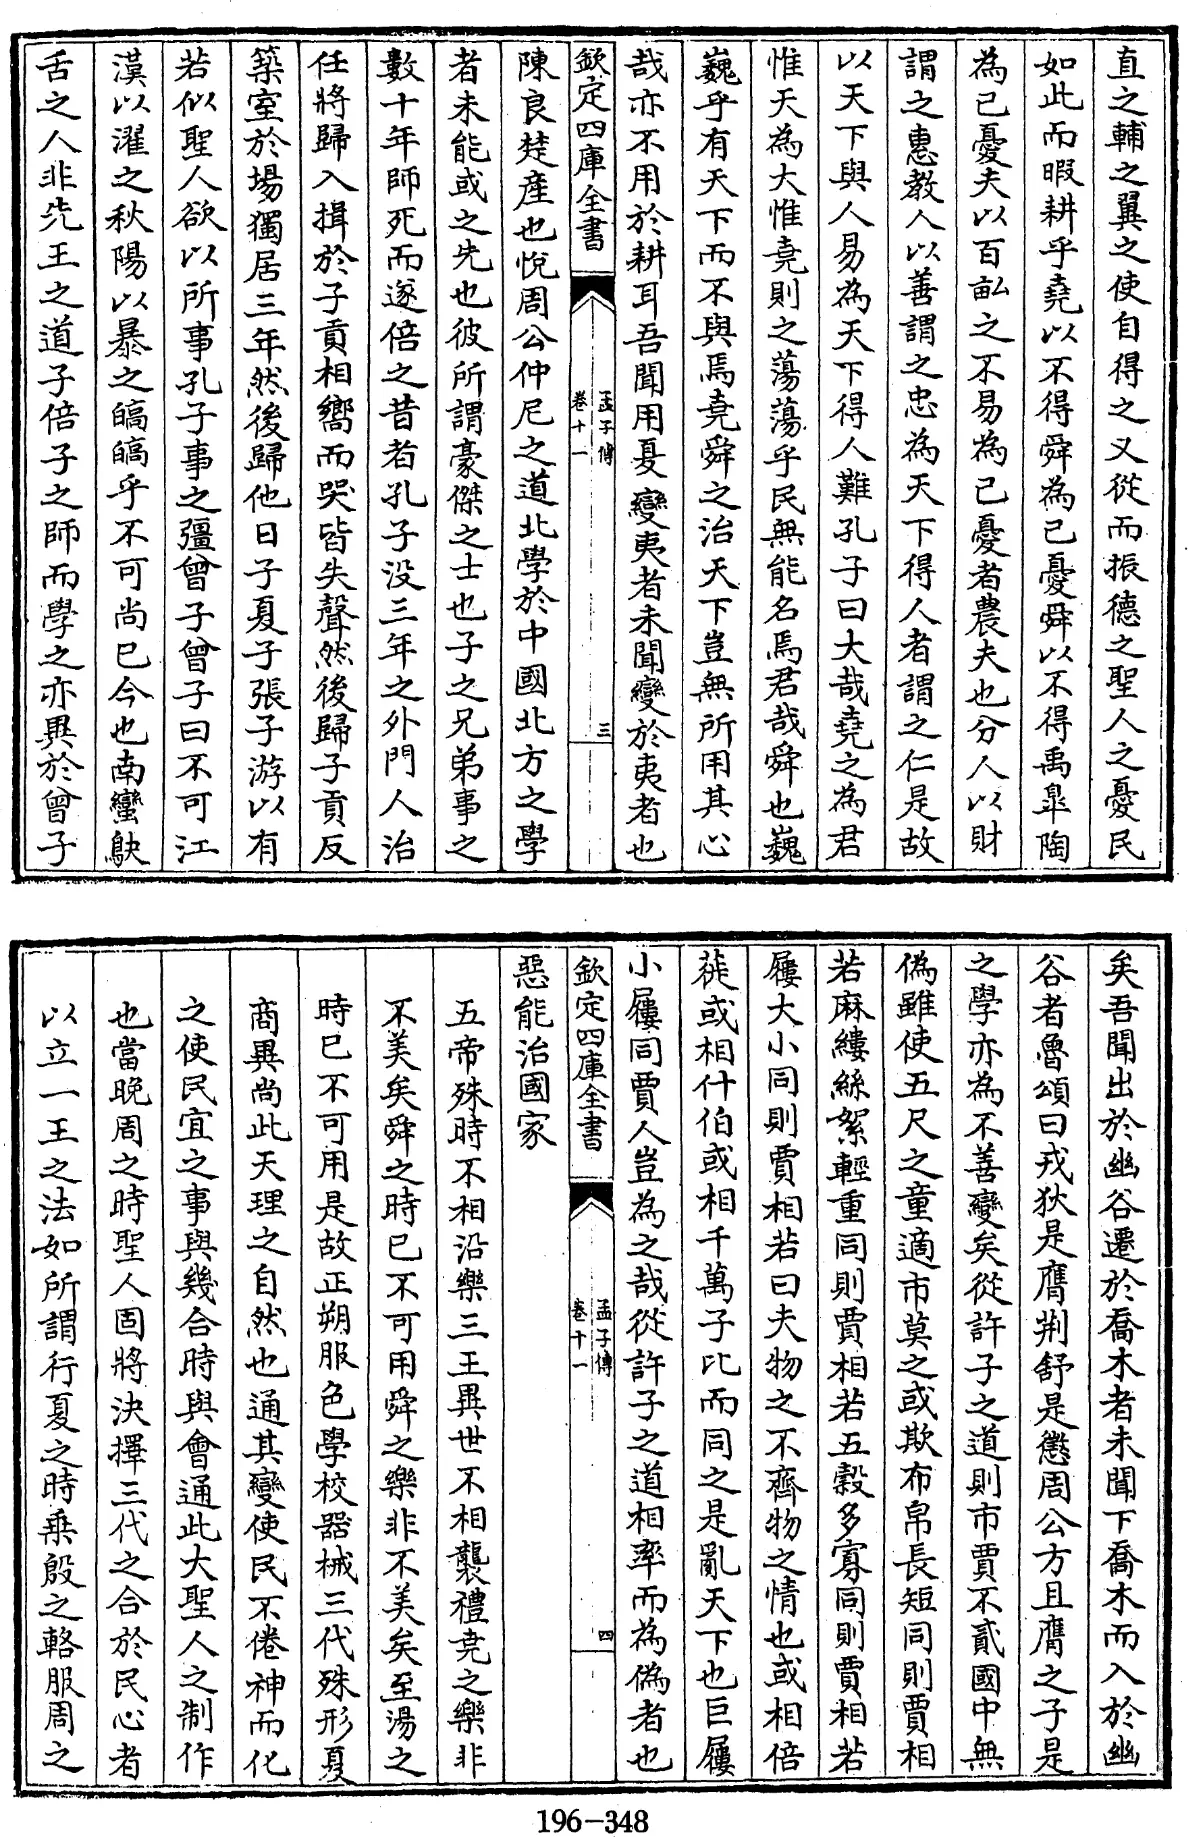 直之輔之翼之使自得之又從而振德之聖人之憂民
如此而暇耕乎堯以不得舜為己憂舜以不得禹臯陶
為己憂夫以百畝之不易為己憂者農夫也分人以財
謂之惠教人以善謂之忠為天下得人者謂之仁是故
以天下與人易為天下得人難孔子曰大哉堯之為君
惟天為大惟堯則之蕩蕩乎民無能名焉君哉舜也巍
巍乎有天下而不與焉堯舜之治天下豈無所用其心
哉亦不用於耕耳吾聞用夏變夷者未聞變於夷者也
欽定四庫全書
孟子傳
卷十一
三
陳良楚產也悅周公仲尼之道北學於中國北方之學
者未能或之先也彼所謂豪傑之士也子之兄弟事之
數十年師死而遂倍之昔者孔子没三年之外門人治
任將歸入揖於子貢相嚮而哭皆失聲然後歸子貢反
築室於場獨居三年然後歸他日子夏子張子游以有
若似聖人欲以所事孔子事之彊曾子曾子曰不可江
漢以濯之秋陽以暴之皜皜乎不可尚已今也南蠻鴃
舌之人非先王之道子倍子之師而學之亦異於曾子
矣吾聞出於幽谷遷於喬木者未聞下喬木而入於幽
谷者魯頌曰戎狄是膺荆舒是懲周公方且膺之子是
之學亦為不善變矣從許子之道則市賈不貳國中無
偽雖使五尺之童適市莫之或欺布帛長短同則賈相
若麻縷絲絮輕重同則賈相若五穀多寡同則賈相若
屨大小同則賈相若曰夫物之不齊物之情也或相倍
蓰或相什伯或相千萬子比而同之是亂天下也巨屨
小屨同賈人豈為之哉從許子之道相率而為偽者也
欽定四庫全書
孟子傳
卷十一
四
惡能治國家
五帝殊時不相沿樂三王異世不相襲禮堯之樂非
不美矣舜之時已不可用舜之樂非不美矣至湯之
時已不可用是故正朔服色學校器械三代殊形夏
商異尚此天理之自然也通其變使民不倦神而化
之使民宜之事與幾合時與會通此大聖人之制作
也當晚周之時聖人固將決擇三代之合於民心者
以立一王之法如所謂行夏之時乘殷之輅服周之
196-348